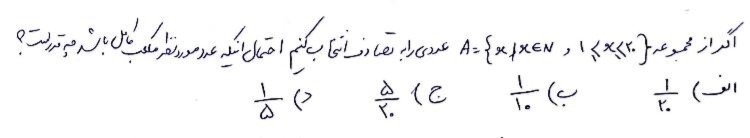 اگر از مجموعه A = {x | x ∈ N , 1 ≤ x ≤ 20} عددی را به تصادف انتخاب کنیم احتمال اینکه عدد مورد نظر مکعب کامل باشد چه قدر است؟
الف) ۱/۲۰ ب) ۱/۱۰ ج) ۵/۲۰ د) ۱/۵